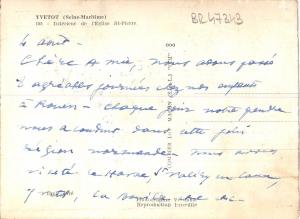 YVETOT (Seine-Maritime)
105 - Intérieur de l'Eglise St-Pierre.
BR47343
4 août -
Chère Amie, nous avons passé
agréables journées chez nos enfants
à Rouen - Chaque jour notre gendre
nous a conduit dans cette jolie
région normande. Nous avons
visité le Havre St Valéry en Caux,
Yvetot, La
Reproduction Interdite